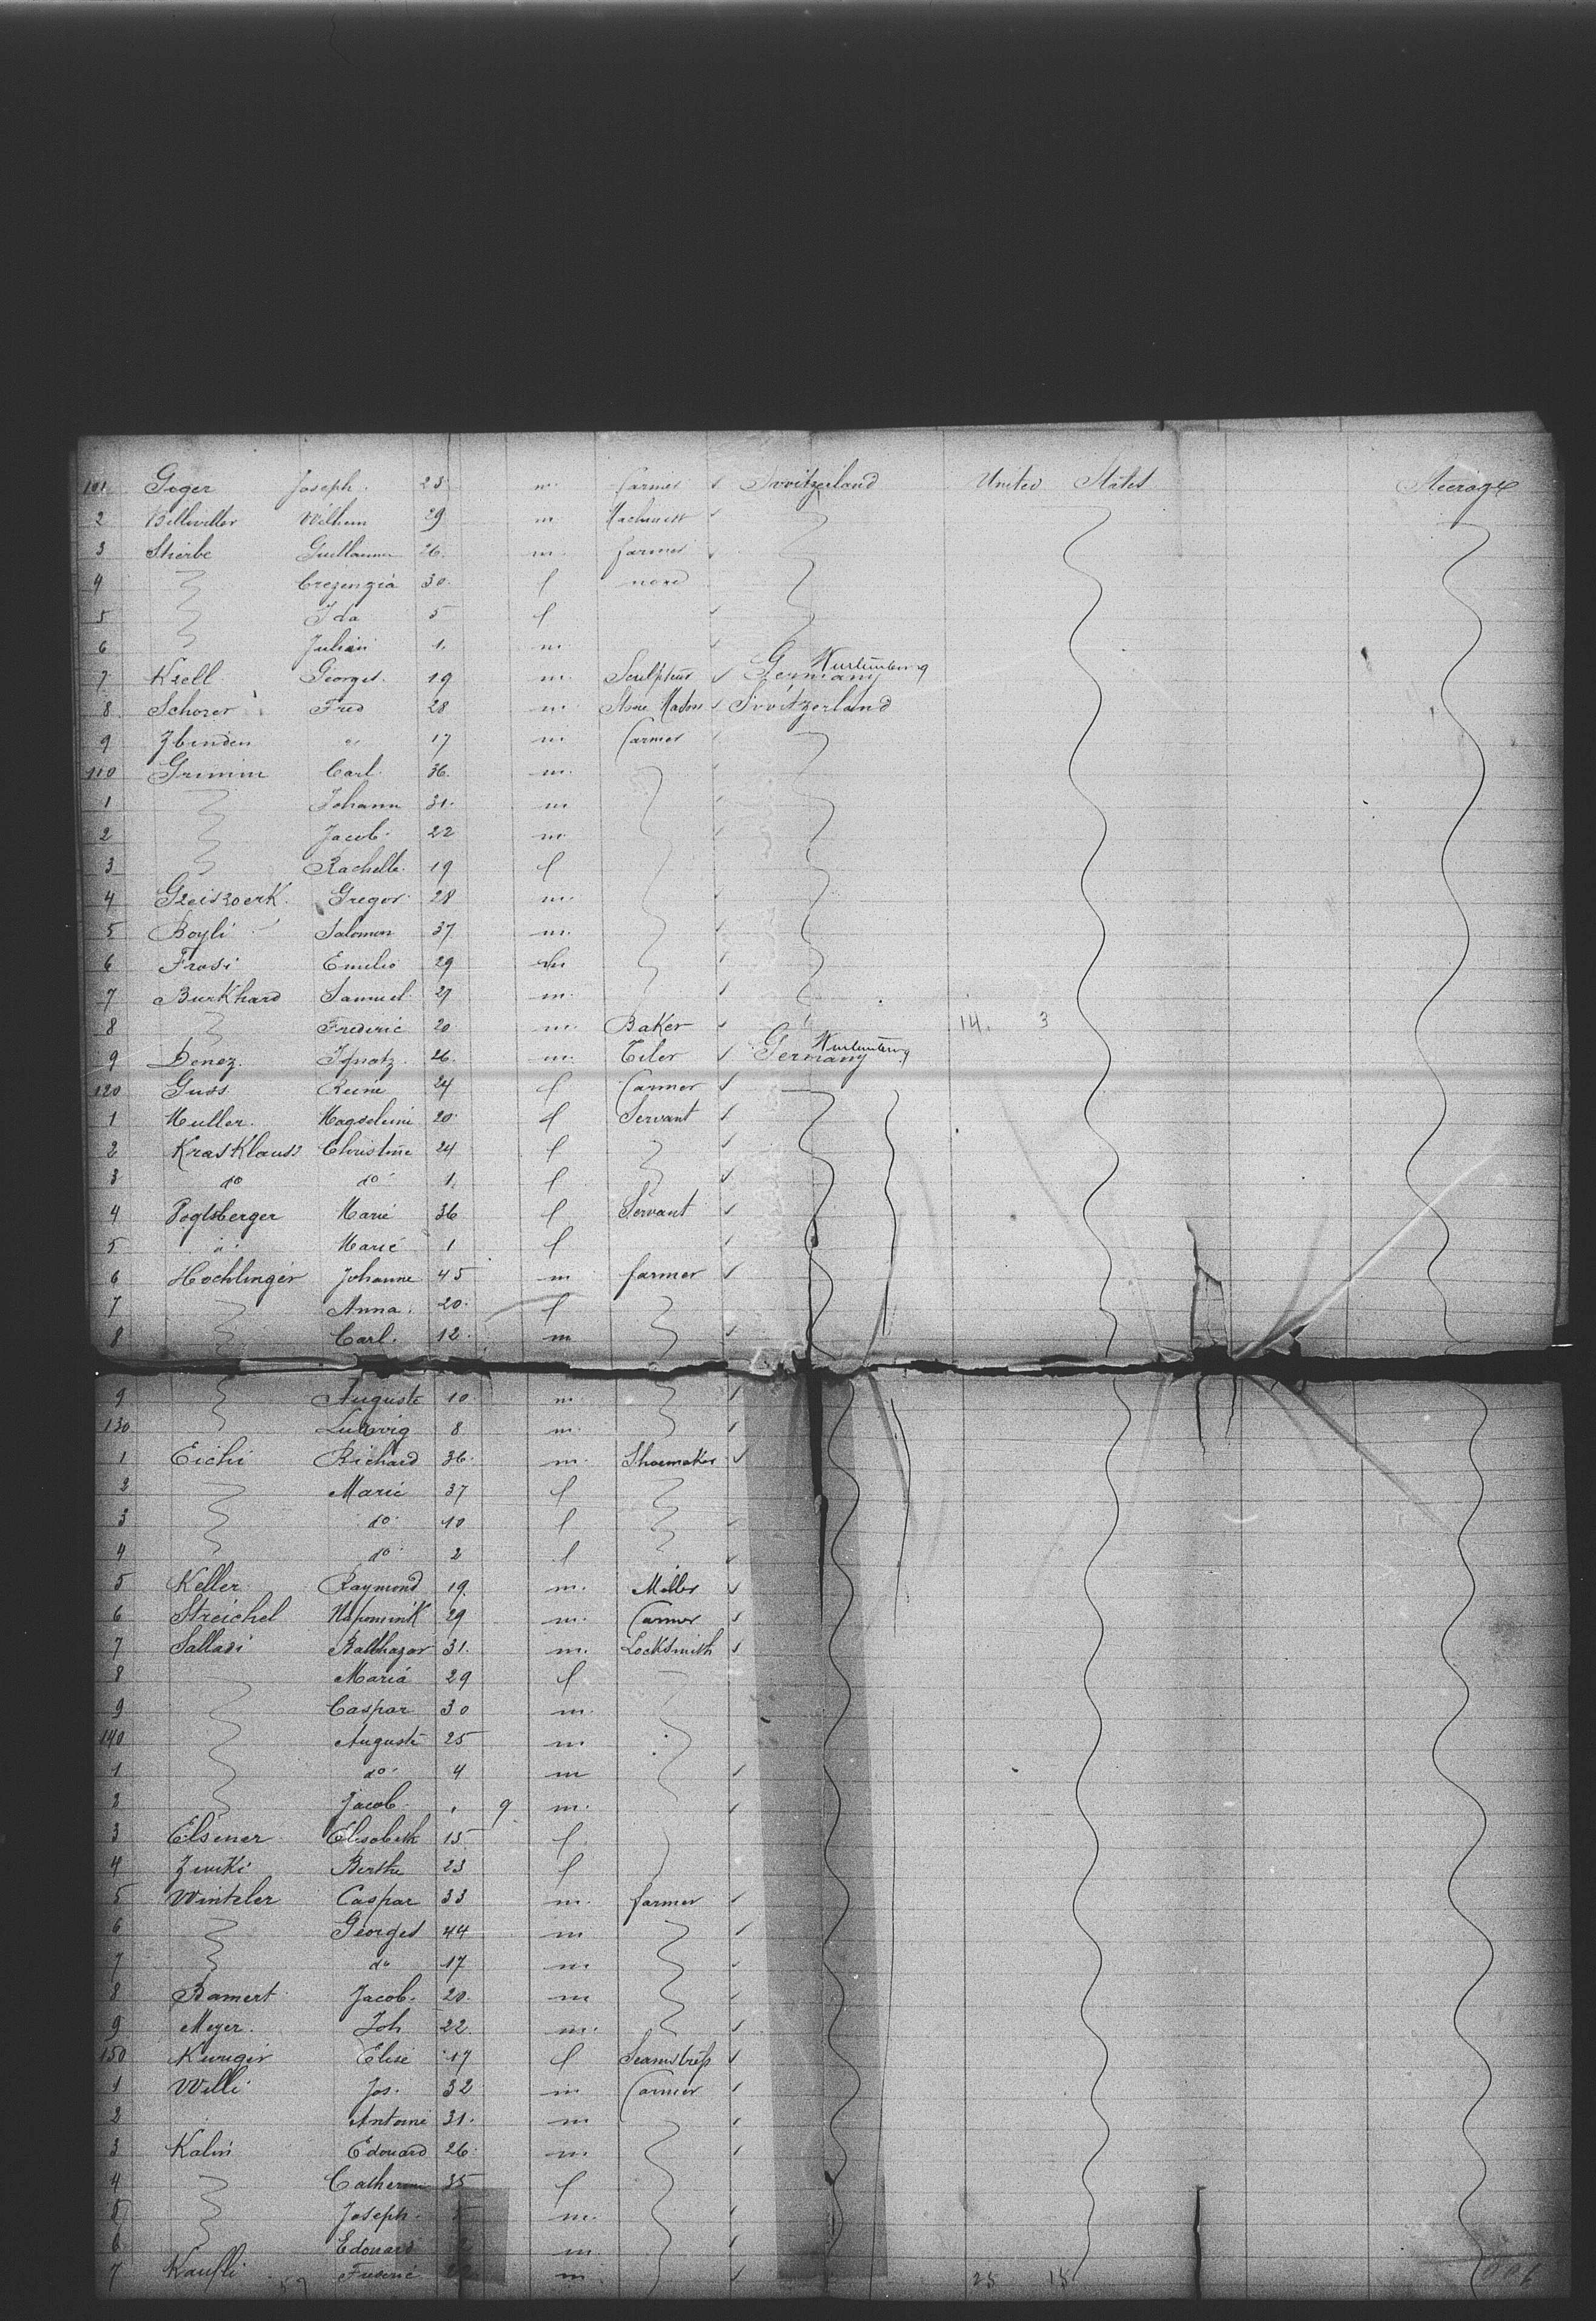 101 Geger Joseph 23 m farmer ✓ Switzerland United States Steerage
2 Wilhem 29 m Machinist ✓
3 Stierbe Guillaume 26 m farmer ✓
4 Crezenzia 30 f none
5 Ida 5 f ✓
6 Julian 1 m ✓
7 Krell Georges 19 m Sculpteur ✓ Germany Wurtemberg
8 Schorer Fred 28 m Stone Mason ✓ Switzerland
9 Zbinden " 17 m Farmer ✓
110 Grimm Carl 36 m ✓
1 Johann 31 m ✓
2 Jacob 22 m ✓
3 Rachelle 19 f
4 Gregor 28 m ✓
5 Boyli Salomon 37 m ✓
6 Frasi Emilio 29 m ✓
7 Burkhard Samuel 27 m ✓
8 Frederic 20 m Baker ✓ 14. 3
9 Denez Ignatz 26 m Tiler ✓ Germany Wurtemberg
120 Guss Reine 24 f Farmer ✓
1 Muller Magdeleine 20 f Servant ✓
2 KrasKlauss Christine 24 f ✓
3 do do 1 f ✓
4 Poglsberger Marie 36 f Servant ✓
5 " Marie 1 f ✓
6 Hochlinger Johanne 45 m farmer ✓
7 Anna 20 f
8 Carl 12 m ✓
9 Auguste 10 m ✓
130 Ludwig 8 m ✓
1 Eichi Richard 36 m Shoemaker ✓
2 Marie 37 f
3 do 10 f ✓
4 do 2 f ✓
5 Keller Raymond 19 m Miller ✓
6 Streichel 29 m Farmer ✓
7 Salladi Balthazar 31 m Locksmith ✓
8 Maria 29 f
9 Caspar 30 m
140 Auguste 25 m
1 do 4 m ✓
2 Jacob 9 m ✓
3 Elsener Elisabeth 15 f
4 Zwiki Berthe 23 f
5 Wintzler Caspar 33 m farmer ✓
6 Georges 44 m ✓
7 do 17 m ✓
8 Bamert Jacob 20 m ✓
9 Meyer Joh 22 m ✓
150 Elise 17 f Seamstress ✓
1 Willi Jos. 32 m Farmer ✓
2 Antoine 31 m ✓
3 Kalin Edouard 26 m ✓
4 Catherine 35 f
5 Joseph 5 m ✓
6 Edouard 2 m ✓
7 22 m ✓ 25 15